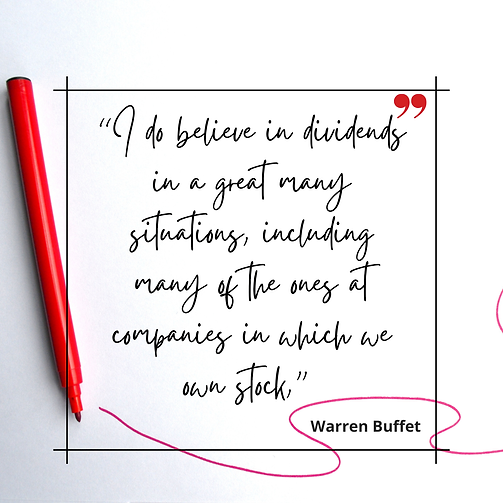 “I do believe in dividends
in a great many
situations, including
many of the ones at
companies in which we
own stock,”
Warren Buffet